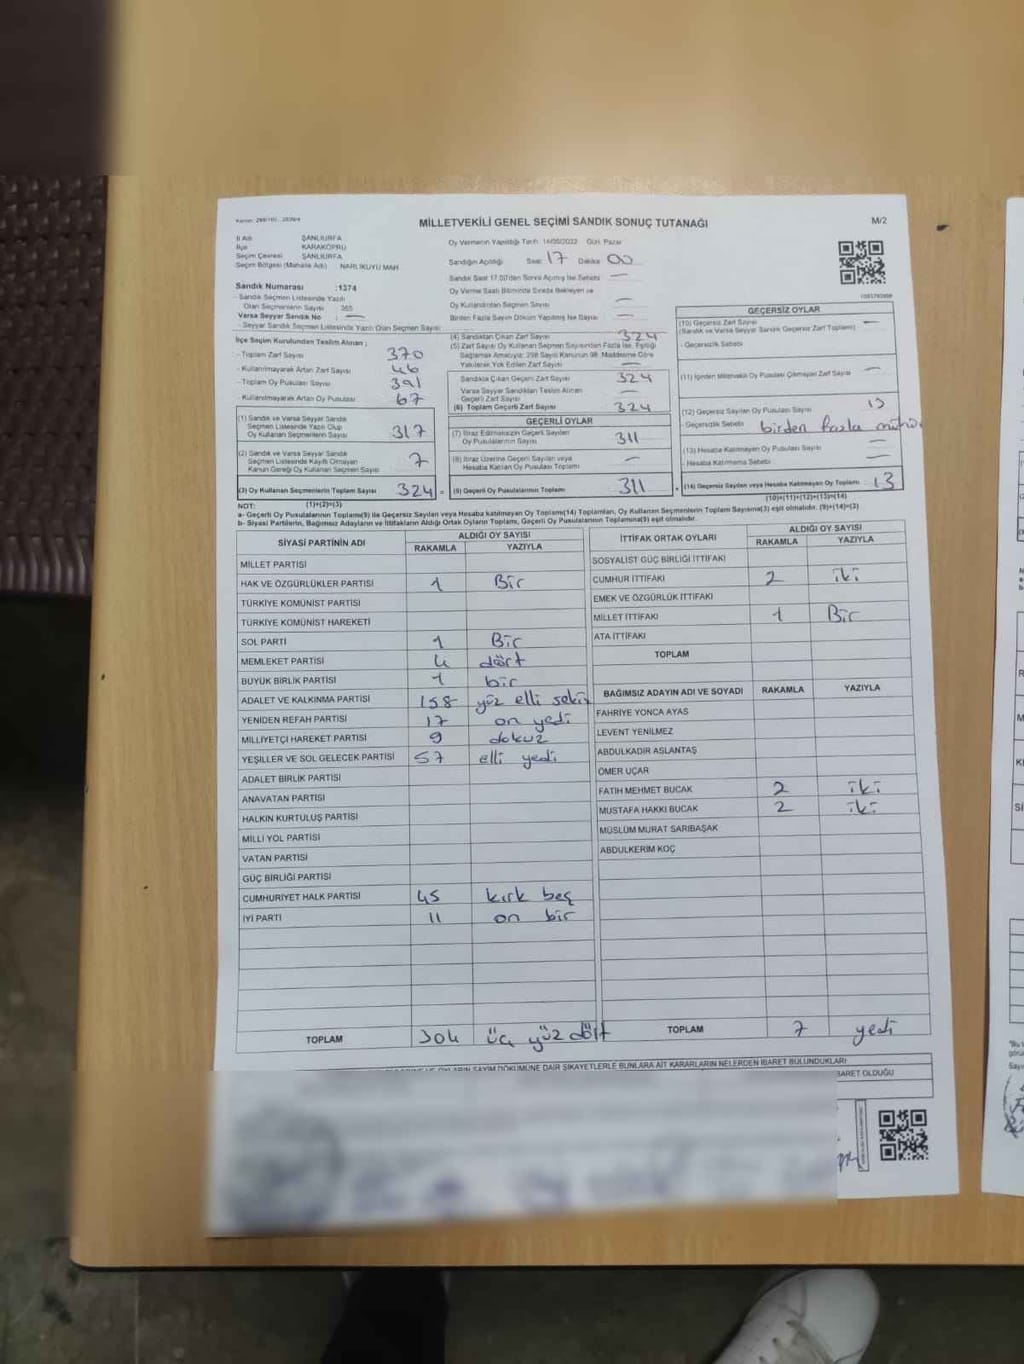 MİLLETVEKİLİ GENEL SEÇİMİ SANDIK SONUÇ TUTANAĞI
M/2
İl Adı ŞANLIURFA
İlçe KARAKÖPRÜ
Seçim Çevresi ŞANLIURFA
Seçim Bölgesi (Mahalle Adı) NARLIKUYU MAH
Sandık Numarası :1374
- Sandık Seçmen Listesinde Yazılı
Olan Seçmenlerin Sayısı 365
Varsa Seyyar Sandık No : —
- Seyyar Sandık Seçmen Listesinde Yazılı Olan Seçmen Sayısı:
Oy Vermenin Yapıldığı Tarih 14/05/2023 Gün Pazar
Sandığın Açıldığı Saat 17 Dakika 00
Sandık Saat 17.00'den Sonra Açılmış İse Sebebi —
Oy Verme Saati Bitiminde Sırada Bekleyen ve
Oy Kullandırılan Seçmen Sayısı —
Birden Fazla Sayım Döküm Yapılmış İse Sayısı —
İlçe Seçim Kurulundan Teslim Alınan ;
- Toplam Zarf Sayısı 370
- Kullanılmayarak Artan Zarf Sayısı 46
- Toplam Oy Pusulası Sayısı 391
- Kullanılmayarak Artan Oy Pusulası 67
(1) Sandık ve Varsa Seyyar Sandık
Seçmen Listesinde Yazılı Olup
Oy Kullanan Seçmenlerin Sayısı 317
(2) Sandık ve Varsa Seyyar Sandık
Seçmen Listesinde Kayıtlı Olmayan
Kanun Gereği Oy Kullanan Seçmen Sayısı 7
(3) Oy Kullanan Seçmenlerin Toplam Sayısı 324
(1)+(2)=(3)
(4) Sandıktan Çıkan Zarf Sayısı 324
(5) Zarf Sayısı Oy Kullanan Seçmen Sayısından Fazla İse, Eşitliği
Sağlamak Amacıyla; 298 Sayılı Kanunun 98. Maddesine Göre
Yakılarak Yok Edilen Zarf Sayısı —
Sandıkta Çıkan Geçerli Zarf Sayısı 324
Varsa Seyyar Sandıktan Teslim Alınan
Geçerli Zarf Sayısı —
(6) Toplam Geçerli Zarf Sayısı 324
GEÇERLİ OYLAR
(7) İtiraz Edilmeksizin Geçerli Sayılan
Oy Pusulalarının Sayısı 311
(8) İtiraz Üzerine Geçerli Sayılan veya
Hesaba Katılan Oy Pusulası Toplamı —
(9) Geçerli Oy Pusulalarının Toplamı 311
GEÇERSİZ OYLAR
(10) Geçersiz Zarf Sayısı —
(Sandık ve Varsa Seyyar Sandık Geçersiz Zarf Toplamı)
- Geçersizlik Sebebi
(11) İçinden Milletvekili Oy Pusulası Çıkmayan Zarf Sayısı —
(12) Geçersiz Sayılan Oy Pusulası Sayısı 13
- Geçersizlik Sebebi birden fazla mühür
(13) Hesaba Katılmayan Oy Pusulası Sayısı —
- Hesaba Katılmama Sebebi —
(14) Geçersiz Sayılan veya Hesaba Katılmayan Oy Toplamı 13
(10)+(11)+(12)+(13)=(14)
NOT:
a- Geçerli Oy Pusulalarının Toplamı(9) ile Geçersiz Sayılan veya Hesaba katılmayan Oy Toplamı(14) Toplamları, Oy Kullanan Seçmenlerin Toplam Sayısına(3) eşit olmalıdır. (9)+(14)=(3)
b- Siyasi Partilerin, Bağımsız Adayların ve İttifakların Aldığı Ortak Oyların Toplamı, Geçerli Oy Pusulalarının Toplamına(9) eşit olmalıdır.
SİYASİ PARTİNİN ADI ALDIĞI OY SAYISI
RAKAMLA YAZIYLA
MİLLET PARTİSİ
HAK VE ÖZGÜRLÜKLER PARTİSİ 1 Bir
TÜRKİYE KOMÜNİST PARTİSİ
TÜRKİYE KOMÜNİST HAREKETİ
SOL PARTİ 1 Bir
MEMLEKET PARTİSİ 4 dört
BÜYÜK BİRLİK PARTİSİ 1 bir
ADALET VE KALKINMA PARTİSİ 158 yüz elli sekiz
YENİDEN REFAH PARTİSİ 17 on yedi
MİLLİYETÇİ HAREKET PARTİSİ 9 dokuz
YEŞİLLER VE SOL GELECEK PARTİSİ 57 elli yedi
ADALET BİRLİK PARTİSİ
ANAVATAN PARTİSİ
HALKIN KURTULUŞ PARTİSİ
MİLLİ YOL PARTİSİ
VATAN PARTİSİ
GÜÇ BİRLİĞİ PARTİSİ
CUMHURİYET HALK PARTİSİ 45 kırk beş
İYİ PARTİ 11 on bir
TOPLAM 304 üç yüz dört
İTTİFAK ORTAK OYLARI ALDIĞI OY SAYISI
RAKAMLA YAZIYLA
SOSYALİST GÜÇ BİRLİĞİ İTTİFAKI
CUMHUR İTTİFAKI 2 iki
EMEK VE ÖZGÜRLÜK İTTİFAKI
MİLLET İTTİFAKI 1 Bir
ATA İTTİFAKI
TOPLAM
BAĞIMSIZ ADAYIN ADI VE SOYADI RAKAMLA YAZIYLA
FAHRİYE YONCA AYAS
LEVENT YENİLMEZ
ABDULKADIR ASLANTAŞ
ÖMER UÇAR
FATİH MEHMET BUCAK 2 iki
MUSTAFA HAKKI BUCAK 2 iki
MÜSLÜM MURAT SARIBAŞAK
ABDULKERİM KOÇ
TOPLAM 7 yedi
OYLARIN SAYIM DÖKÜMÜNE DAİR ŞİKAYETLERLE BUNLARA AİT KARARLARIN NELERDEN İBARET BULUNDUKLARI
BARET OLDUĞU